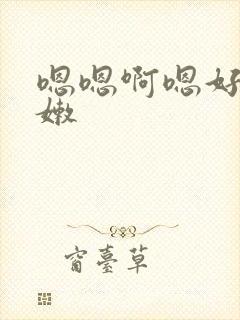 嗯嗯啊嗯好
嫩
窗臺草